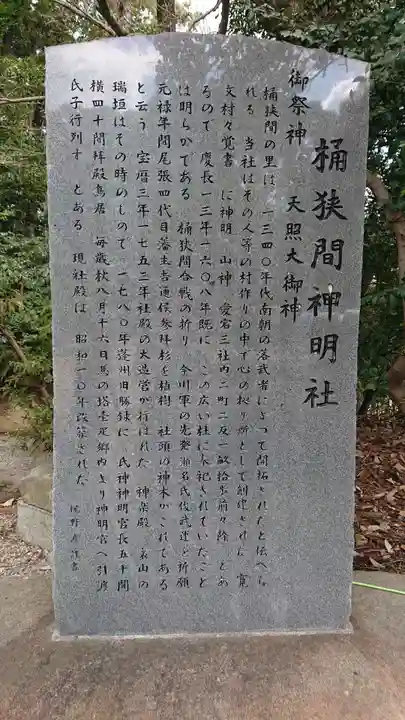 桶狭間神明社
御祭神 天照大御神
桶狭間の里は 一三四〇年代南朝の落武者によって開拓されたと伝へら
れる 当社はその人等の村作りの中で心の拠り所として創建された 寛
文村々覚書 に神明 山神 愛宕三社内二町二反一畝拾歩前々除 とあ
るので 慶長一三年一六〇八年既に この広い社に奉祀されていたこと
は明らかである 桶狭間合戦の折り 今川軍の先発瀬名氏俊武運を祈願
元禄年間尾張四代目藩主吉通侯参拝杉を植樹 社頭の神木がこれである
と云う 宝暦三年一七五三年社殿の大造営が行はれた 神楽殿 裏山の
瑞垣はその時のもので 一七八〇年蓬州旧勝録に 氏神神明宮長五十間
横四十間拝殿鳥居 毎歳秋八月十六日馬の塔壱疋郷内より神明宮へ引渡
氏子行列す とある 現社殿は 昭和一〇年改築された